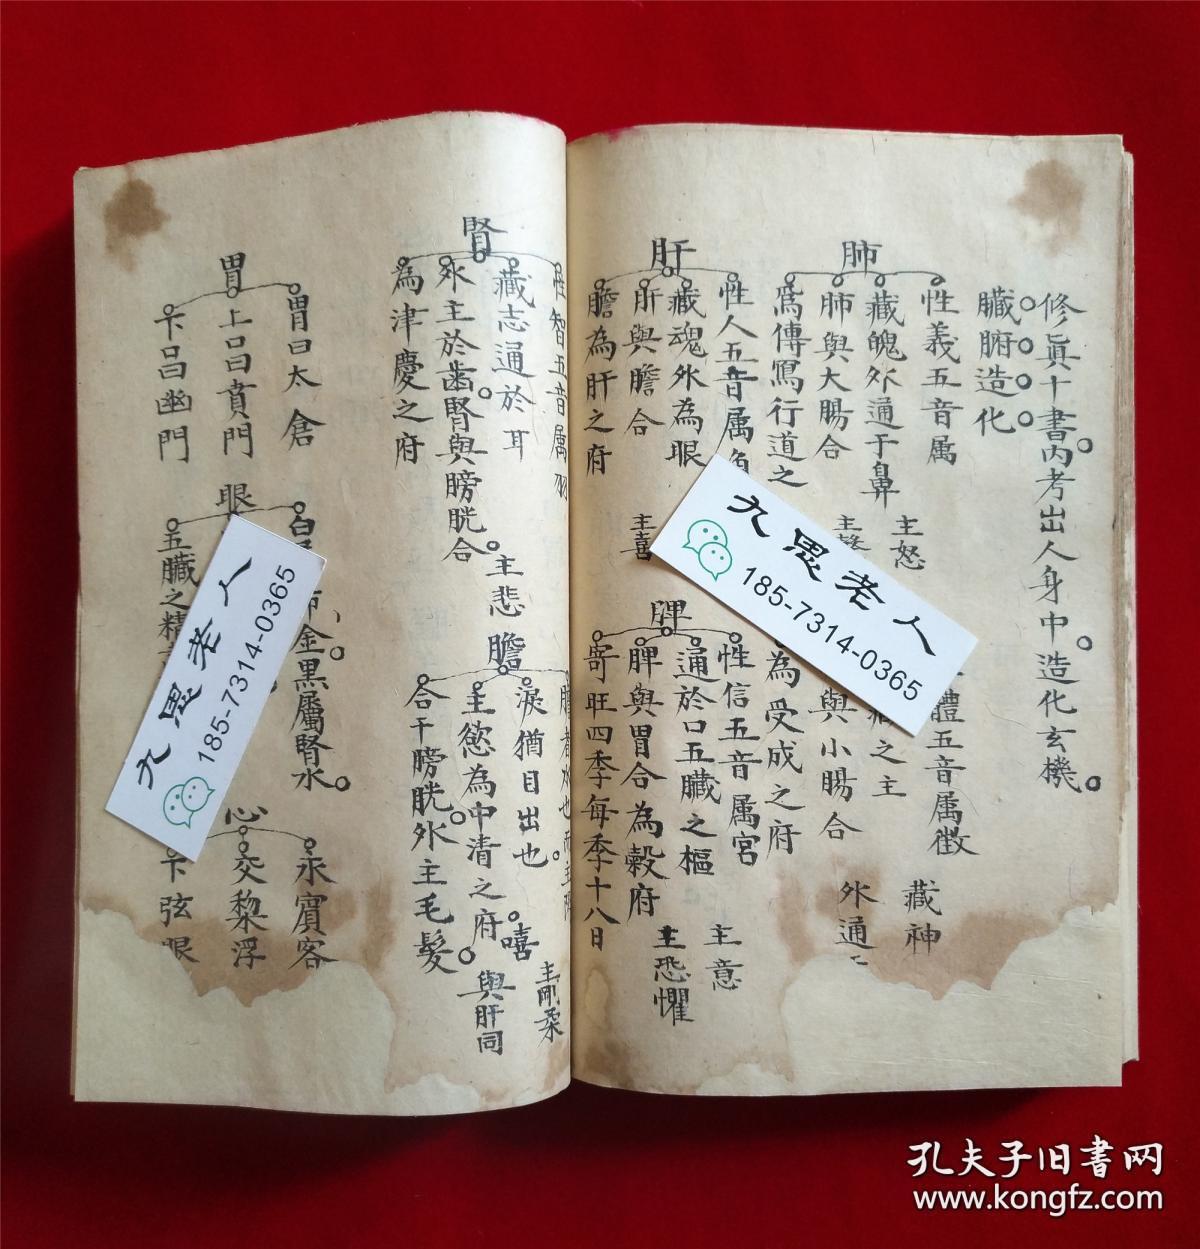 修真十書內考出人身中造化玄機
臟腑造化
肺
性義五音属
藏魄外通于鼻
肺與大腸合
為傳寫行道之
主怒
體五音属徵
之主
與小腸合
為受成之府
藏神
外通
肝
性人五音属
藏魂外為眼
肝與膽合
膽為肝之府
主喜
脾
性信五音属宮
通於口五臟之樞
脾與胃合為穀府
寄旺四季每季十八日
主意
主恐懼
腎
性智五音属羽
藏志通於耳
外主於齒腎與膀胱合
為津慶之府
主悲
膽
淚猶目出也
主慾為中清之府
合于膀胱外主毛髮
嘻
主剛柔
與肝同
胃
胃曰太倉
上口曰賁門
下口曰幽門
眼
金黑屬腎水
五臟之精
心
永賓客
交黎浮
下弦眼
九思老人
185-7314-0365
九思老人
185-7314-0365
孔夫子旧书网
www.kongfz.com